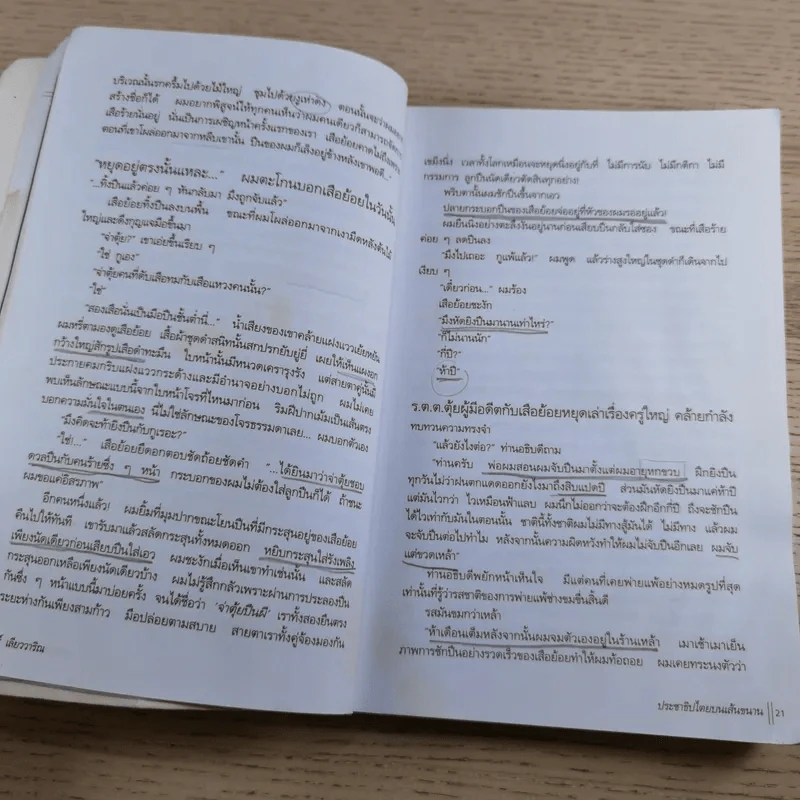 บริเวณนั้นรกครึ้มไปด้วยไม้ใหญ่ ชุมไปด้วยงูเห่าดง ตอนนั้นจะว่าผมอยาก
สร้างชื่อก็ได้ ผมอยากพิสูจน์ให้ทุกคนเห็นว่าผมคนเดียวก็สามารถจัดการ
เสือร้ายนั่นอยู่ นั่นเป็นการเผชิญหน้าครั้งแรกของเรา เสือย้อยคาดไม่ถึง
ตอนที่เขาโผล่ออกมาจากหลืบเขานั้น ปืนของผมก็เล็งอยู่ข้างหลังเขาพอดี..."
"หยุดอยู่ตรงนั้นแหละ..." ผมตะโกนบอกเสือย้อยในวันนั้น
"...ทิ้งปืนแล้วค่อย ๆ หันกลับมา มึงถูกจับแล้ว"
เสือย้อยทิ้งปืนลงบนพื้น ขณะที่ผมโผล่ออกมาจากเงามืดหลังต้นไม้
ใหญ่และดึงกุญแจมือขึ้นมา
"จ่าตุ้ย?" เขาเอ่ยขึ้นเรียบ ๆ
"ใช่ กูเอง"
"จ่าตุ้ยคนที่ดับเสือทมกับเสือแหวงคนนั้น?"
"ใช่"
"สองเสือนั่นเป็นมือปืนชั้นต่ำนี่..." น้ำเสียงของเขาคล้ายแฝงแววเย้ยหยัน
ผมหรี่ตามองดูเสือย้อย เสื้อผ้าชุดดำสนิทนั้นสกปรกยับยู่ยี่ เผยให้เห็นแผงอก
กว้างใหญ่สักรูปเสือดำทะมึน ใบหน้านั้นมีหนวดเครารุงรัง แต่สายตาคู่นั้นมี
ประกายคมกริบแฝงแววกระด้างและมีอำนาจอย่างบอกไม่ถูก ผมไม่เคย
พบเห็นลักษณะแบบนี้จากใบหน้าโจรที่ไหนมาก่อน ริมฝีปากเม้มเป็นเส้นตรง
บอกความมั่นใจในตนเอง นี่ไม่ใช่ลักษณะของโจรธรรมดาเลย... ผมบอกตัวเอง
"มึงคิดจะท้ายิงปืนกับกูเรอะ?"
"ใช่!..." เสือย้อยยืดอกตอบชัดถ้อยชัดคำ "...ได้ยินมาว่าจ่าตุ้ยชอบ
ดวลปืนกับคนร้ายซึ่ง ๆ หน้า กระบอกของผมไม่ต้องใส่ลูกปืนก็ได้ ถ้าชนะ
ผมขอแค่อิสรภาพ"
อีกคนหนึ่งแล้ว! ผมยิ้มที่มุมปากขณะโยนปืนที่มีกระสุนอยู่ของเสือย้อย
คืนไปให้ทันที เขารับมาแล้วสลัดกระสุนทั้งหมดออก หยิบกระสุนใส่รังเพลิง
เพียงนัดเดียวก่อนเสียบปืนใส่เอว ผมชะงักเมื่อเห็นเขาทำเช่นนั้น และสลัด
กระสุนออกเหลือเพียงนัดเดียวบ้าง ผมไม่รู้สึกกลัวเพราะผ่านการประลองปืน
กันซึ่ง ๆ หน้าแบบนี้มาบ่อยครั้ง จนได้ชื่อว่า 'จ่าตุ้ยปืนผี' เราทั้งสองยืนตรง
ระยะห่างกันเพียงสามก้าว มือปล่อยตามสบาย สายตาเราทั้งคู่จ้องมองกัน
เลียววาริณ
เขม็งนิ่ง เวลาทั้งโลกเหมือนจะหยุดนิ่งอยู่กับที่ ไม่มีการนับ ไม่มีกติกา ไม่มี
กรรมการ ลูกปืนนัดเดียวตัดสินทุกอย่าง!
พริบตานั้นผมชักปืนขึ้นจากเอว
ปลายกระบอกปืนของเสือย้อยจ่ออยู่ที่หัวของผมรออยู่แล้ว!
ผมยืนนิ่งอย่างตะลึงงันอยู่นานก่อนเสียบปืนกลับใส่ซอง ขณะที่เสือร้าย
ค่อย ๆ ลดปืนลง
"มึงไปเถอะ กูแพ้แล้ว!" ผมพูด แล้วร่างสูงใหญ่ในชุดดำก็เดินจากไป
เงียบ ๆ
"เดี๋ยวก่อน..." ผมร้อง
เสือย้อยชะงัก
"มึงหัดยิงปืนมานานเท่าไหร่?"
"ก็ไม่นานนัก"
"กี่ปี?"
"ห้าปี"
ร.ต.ต.ตุ้ยผู้มือดีตกับเสือย้อยหยุดเล่าเรื่องครู่ใหญ่ คล้ายกำลัง
ทบทวนความทรงจำ
"แล้วยังไงต่อ?" ท่านอธิบดีถาม
"ท่านครับ พ่อผมสอนผมจับปืนมาตั้งแต่ผมอายุหกขวบ ฝึกยิงปืน
ทุกวันไม่ว่าฝนตกแดดออกยังไงมาถึงสิบแปดปี ส่วนมันหัดยิงปืนมาแค่ห้าปี
แต่มันไวกว่า ไวเหมือนฟ้าแลบ ผมนึกไม่ออกว่าจะต้องฝึกอีกกี่ปี ถึงจะชักปืน
ได้ไวเท่ากับมันในตอนนั้น ชาตินี้ทั้งชาติผมไม่มีทางสู้มันได้ ไม่มีทาง แล้วผม
จะจับปืนต่อไปทำไม หลังจากนั้นความผิดหวังทำให้ผมไม่จับปืนอีกเลย ผมจับ
แต่ขวดเหล้า"
ท่านอธิบดีพยักหน้าเห็นใจ มีแต่คนที่เคยพ่ายแพ้อย่างหมดรูปที่สุด
เท่านั้นที่รู้ว่ารสชาติของการพ่ายแพ้ช่างขมขื่นสิ้นดี
รสมันขมกว่าเหล้า
"ห้าเดือนเต็มหลังจากนั้นผมจมตัวเองอยู่ในร้านเหล้า เมาเช้าเมาเย็น
ภาพการชักปืนอย่างรวดเร็วของเสือย้อยทำให้ผมท้อถอย ผมเคยทระนงตัวว่า
ประชาธิปไตยบนเส้นขนาน 21